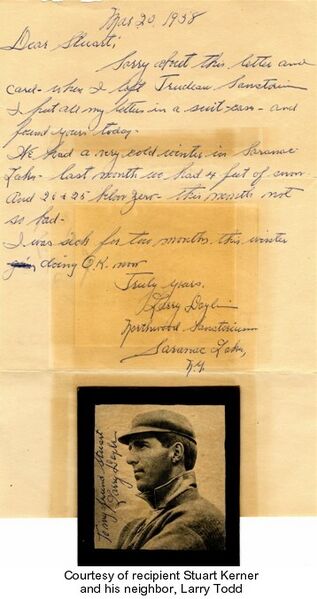 Mar 20, 1938
Dear Stuart;
Sorry about this letter and
card - when I left Trudeau Sanatorium
I put all my letters in a suit-case - and
found yours today.
We had a very cold winter in Saranac
Lake - last month we had 4 feet of snow.
And 20 & 25 below zero - this month not
so bad -
I was sick for two months this winter
doing O.K. now
Truly yours,
Larry Doyle
Northwood Sanatorium
Saranac Lake,
N.Y.
To my friend Stuart
Larry Doyle
Courtesy of recipient Stuart Kerner
and his neighbor, Larry Todd